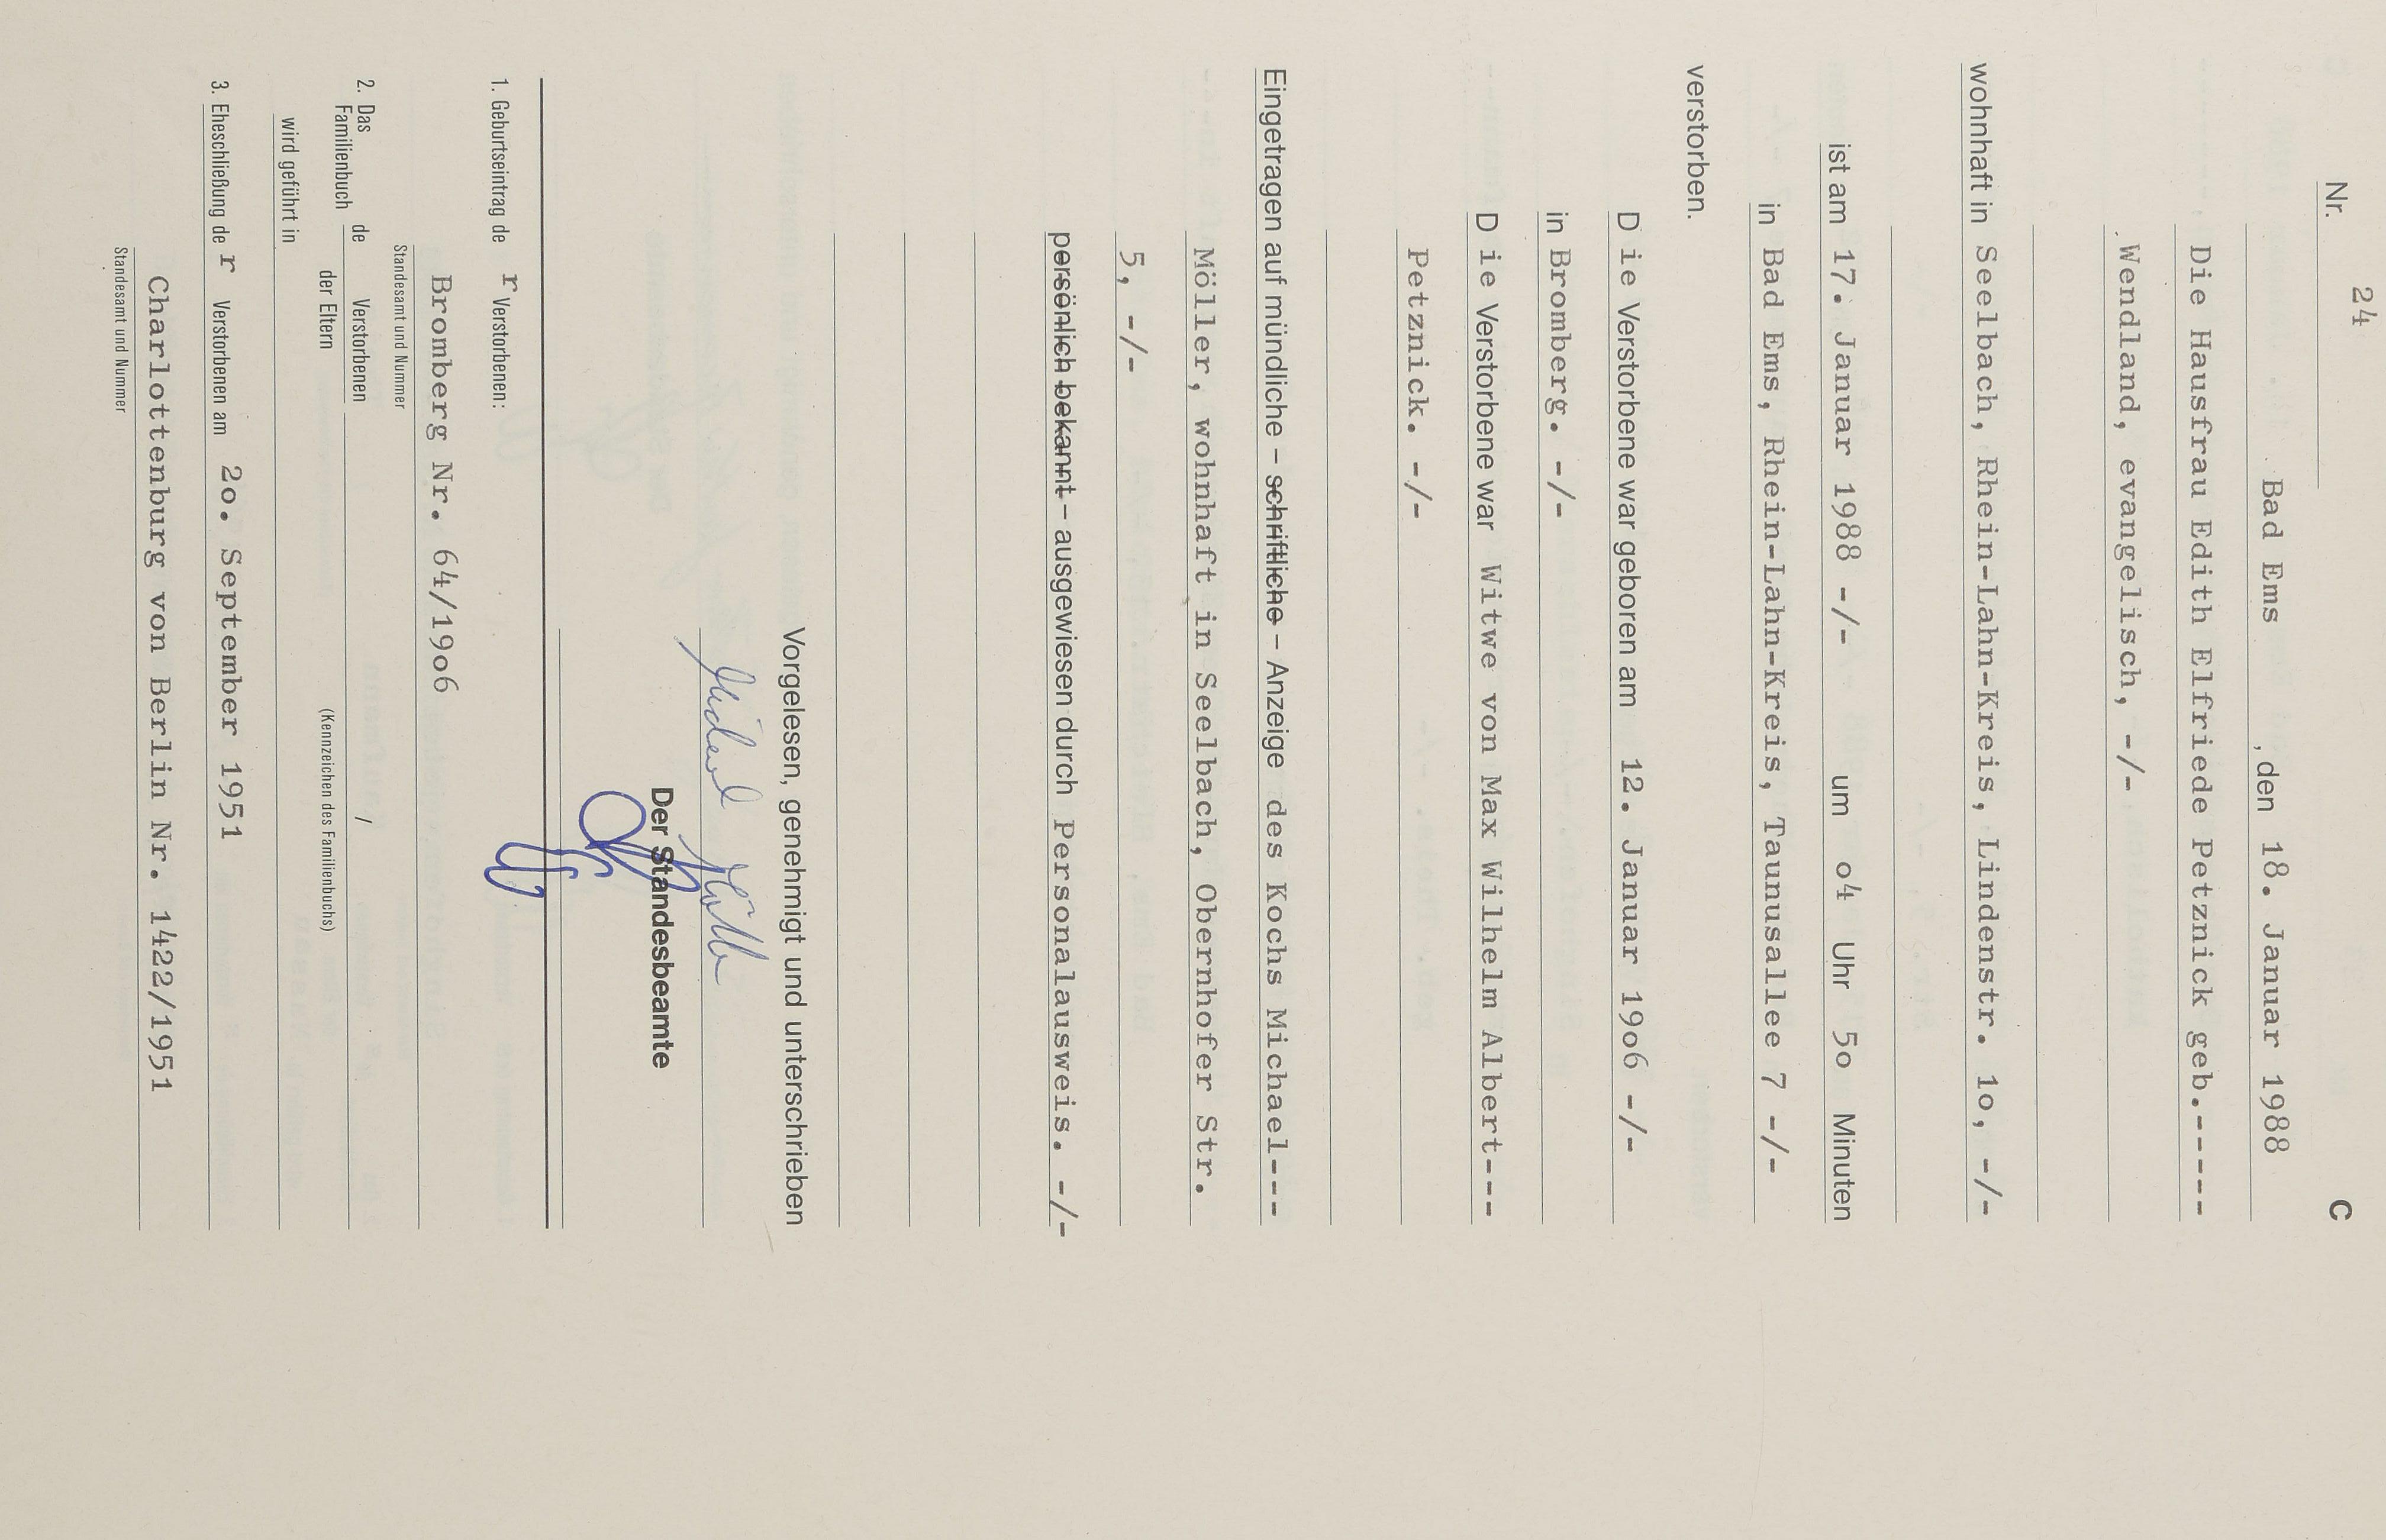 C
Nr. 24
Bad Ems, den 18. Januar 1988
Die Hausfrau Edith Elfriede Petznick geb.-----
Wendland, evangelisch, -/-
wohnhaft in Seelbach, Rhein-Lahn-Kreis, Lindenstr. 1o, -/-
ist am 17. Januar 1988 -/- um o4 Uhr 5o Minuten
in Bad Ems, Rhein-Lahn-Kreis, Taunusallee 7 -/-
verstorben.
D ie Verstorbene war geboren am 12. Januar 19o6 -/-
in Bromberg. -/-
D ie Verstorbene war Witwe von Max Wilhelm Albert---
Petznick. -/-
Eingetragen auf mündliche – schriftliche – Anzeige des Kochs Michael---
Möller, wohnhaft in Seelbach, Obernhofer Str.
5, -/-
persönlich bekannt – ausgewiesen durch Personalausweis. -/-
Vorgelesen, genehmigt und unterschrieben
Michael Möller
Der Standesbeamte
1. Geburtseintrag de r Verstorbenen:
Bromberg Nr. 64/19o6
Standesamt und Nummer
2. Das Familienbuch de Verstorbenen /
der Eltern (Kennzeichen des Familienbuchs)
wird geführt in
3. Eheschließung de r Verstorbenen am 2o. September 1951
Charlottenburg von Berlin Nr. 1422/1951
Standesamt und Nummer